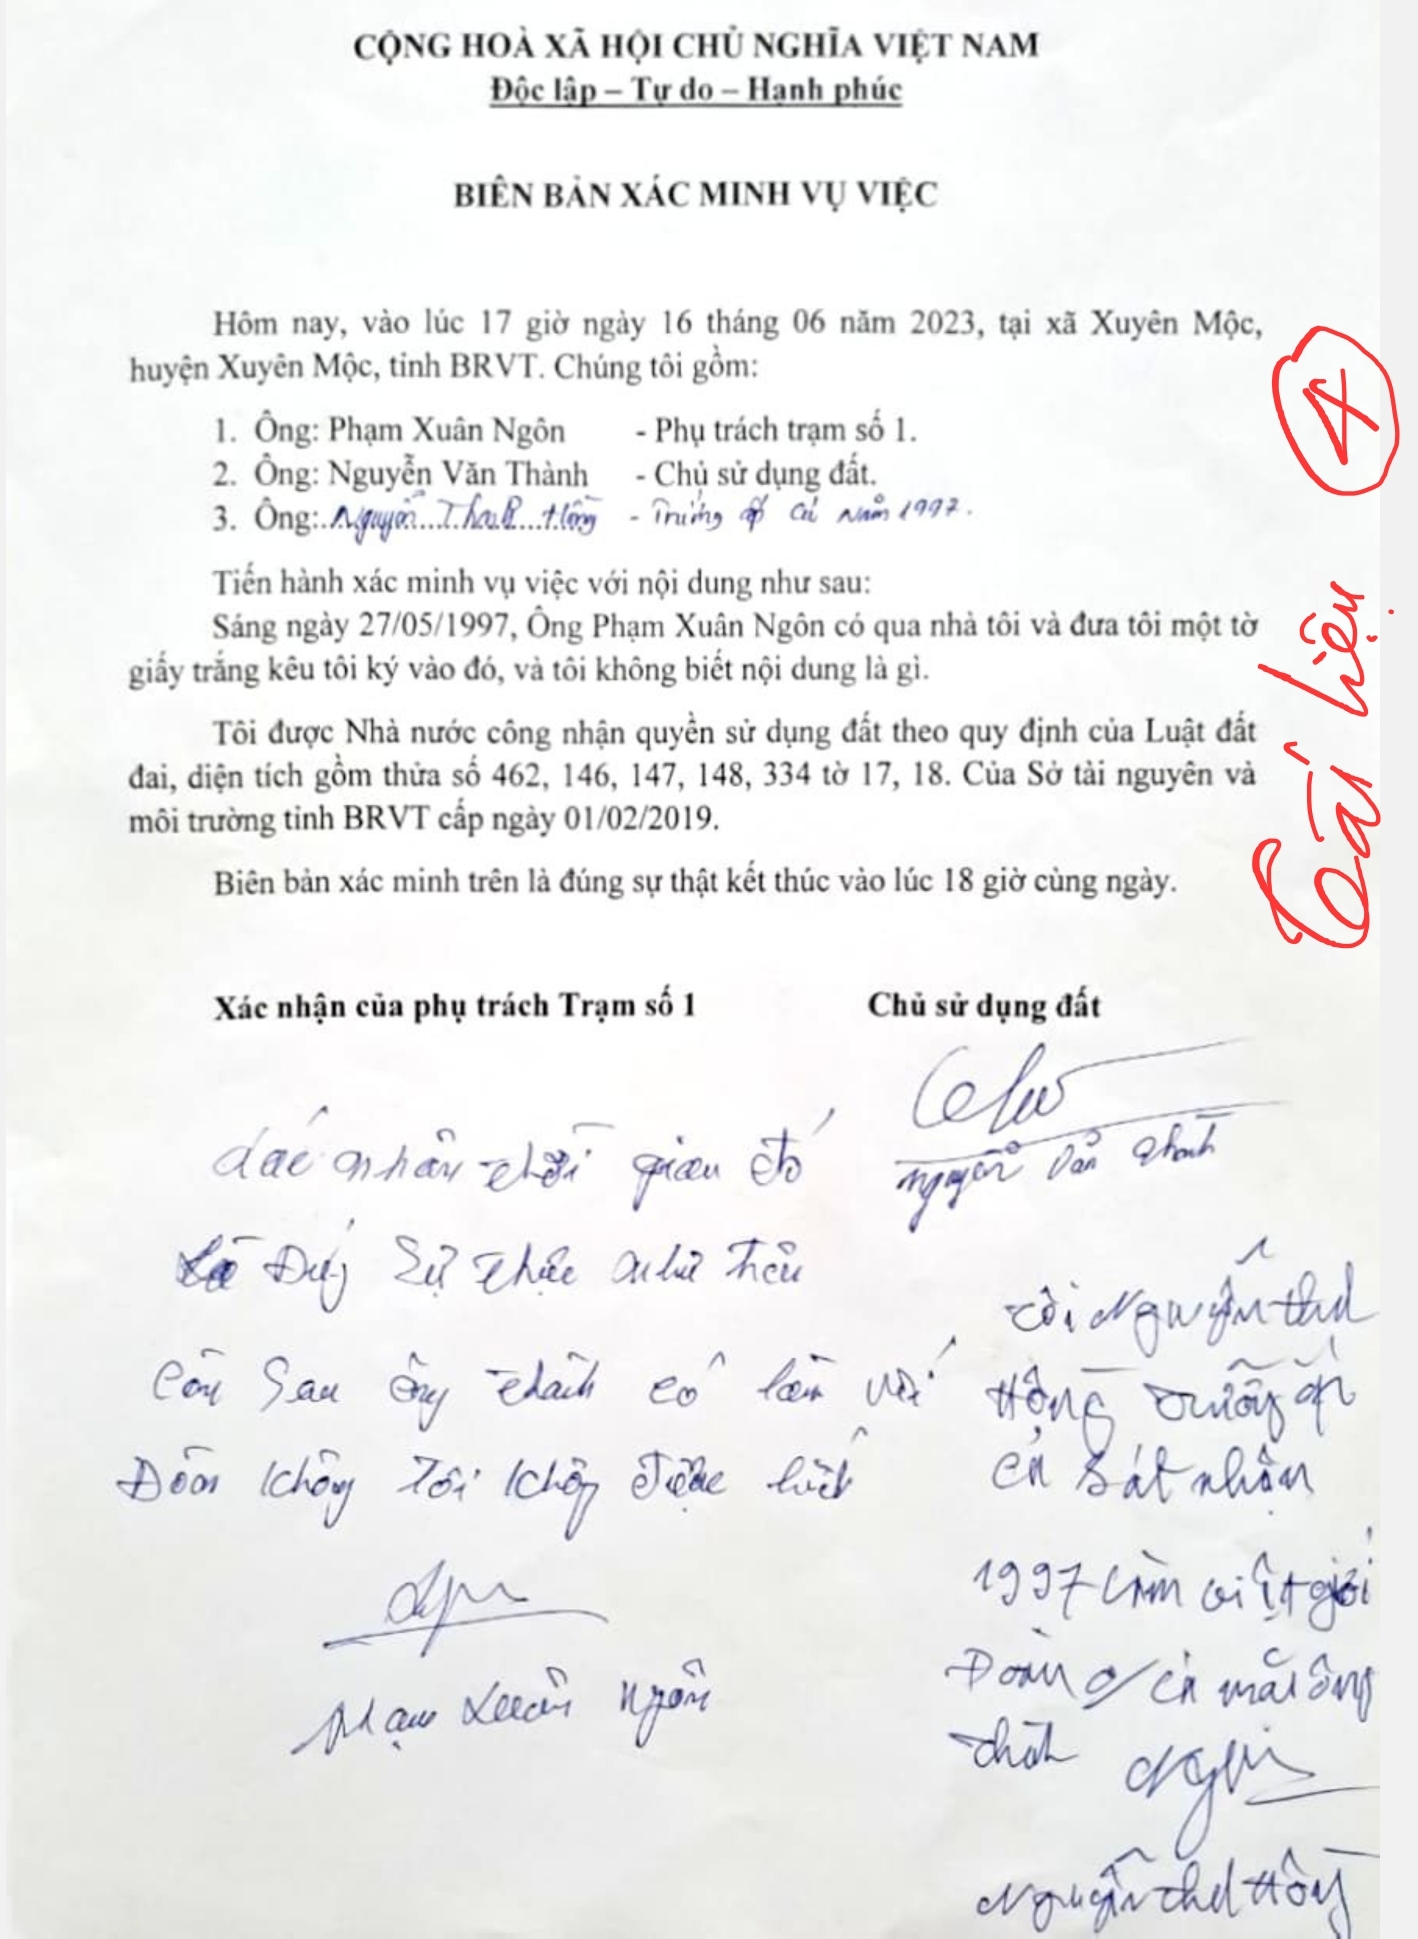 CỘNG HOÀ XÃ HỘI CHỦ NGHĨA VIỆT NAM
Độc lập – Tự do – Hạnh phúc
BIÊN BẢN XÁC MINH VỤ VIỆC
Hôm nay, vào lúc 17 giờ ngày 16 tháng 06 năm 2023, tại xã Xuyên Mộc,
huyện Xuyên Mộc, tỉnh BRVT. Chúng tôi gồm:
1. Ông: Phạm Xuân Ngôn - Phụ trách trạm số 1.
2. Ông: Nguyễn Văn Thành - Chủ sử dụng đất.
3. Ông: Nguyễn Hồng - Trưởng ấp năm 1997.
Tiến hành xác minh vụ việc với nội dung như sau:
Sáng ngày 27/05/1997, Ông Phạm Xuân Ngôn có qua nhà tôi và đưa tôi một tờ
giấy trắng kêu tôi ký vào đó, và tôi không biết nội dung là gì.
Tôi được Nhà nước công nhận quyền sử dụng đất theo quy định của Luật đất
đai, diện tích gồm thửa số 462, 146, 147, 148, 334 tờ 17, 18. Của Sở tài nguyên và
môi trường tỉnh BRVT cấp ngày 01/02/2019.
Biên bản xác minh trên là đúng sự thật kết thúc vào lúc 18 giờ cùng ngày.
Tài liệu 4
Xác nhận của phụ trách Trạm số 1
Chủ sử dụng đất
Nguyễn Văn Thành
Xác nhận thời gian đó
là Đúng Sự thực như trên
Còn Sau ông thành có làm với
Đoàn không Tôi không được biết
Phạm Xuân Ngôn
Tôi Nguyễn
Hồng trưởng ấp
nhận
1997 làm việt giới
Đoàn ông
Nguyễn Hồng